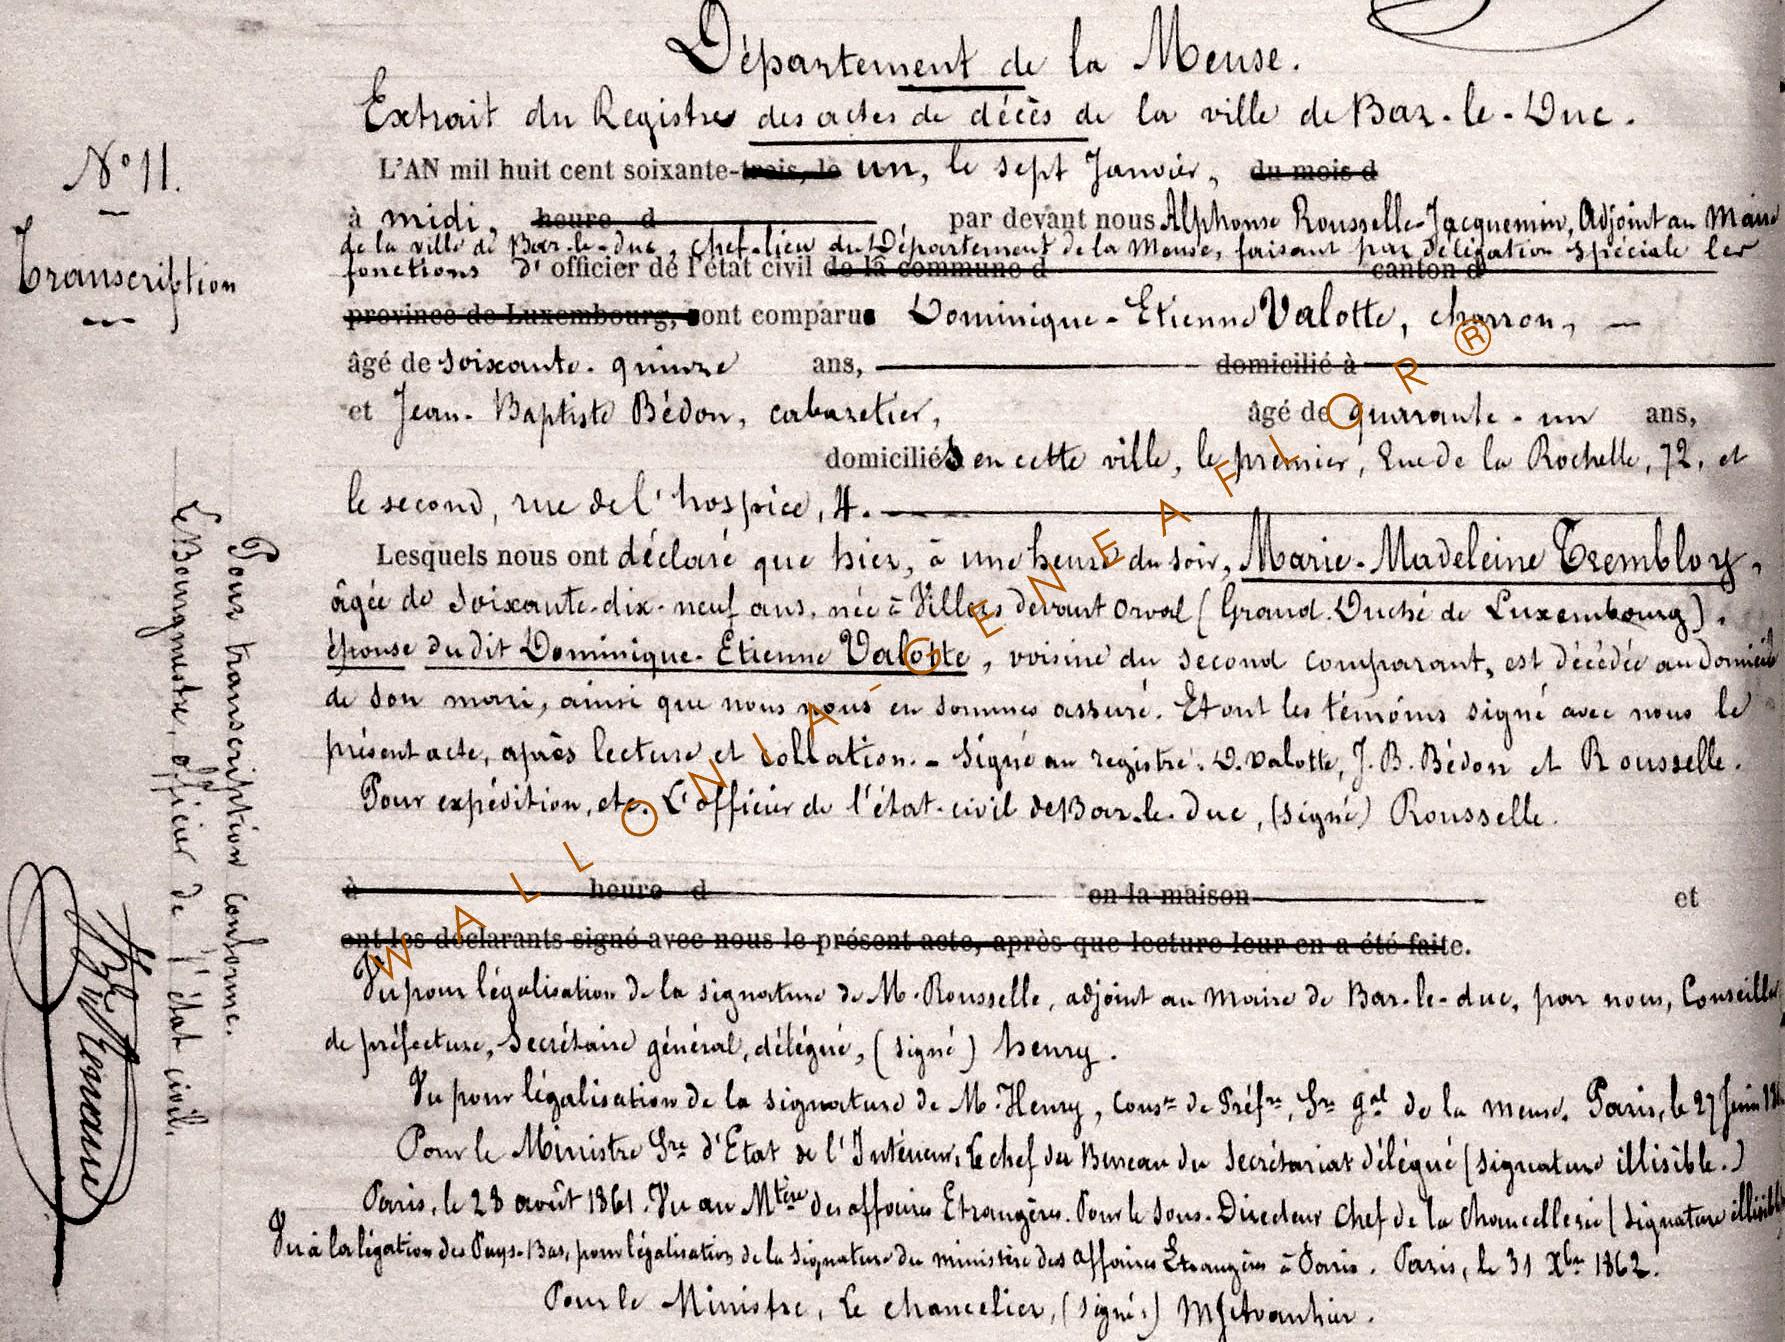 Département de la Meuse.
Extrait du Registre des actes de décès de la ville de Bar-le-Duc.
N° 11.
Transcription
L'AN mil huit cent soixante-trois, le un, le sept Janvier, du mois d
à midi, heure d par devant nous Alphonse Rousselle-Jacquemin, Adjoint au Maire
de la ville de Bar-le-duc, chef-lieu du Département de la Meuse, faisant par délégation spéciale les
fonctions d'officier de l'état civil de la commune d canton d
province de Luxembourg, sont comparus Dominique-Etienne Valotte, charron,
âgé de soixante-quinze ans, domicilié à
et Jean-Baptiste Bédon, cabaretier, âgé de quarante-un ans,
domiciliés en cette ville, le premier, Rue de la Rochelle, 72, et
le second, rue de l'hospice, 4.
Lesquels nous ont déclaré que hier, à une heure du soir, Marie-Madeleine Trembloy,
âgée de soixante-dix-neuf ans, née à Villers devant orval (Grand-Duché de Luxembourg),
épouse du dit Dominique-Etienne Valotte, voisine du second comparant, est décédée au domicile
de son mari, ainsi que nous nous en sommes assuré. Et ont les témoins signé avec nous le
présent acte, après lecture et collation. - Signé au registre: D. Valotte, J. B. Bédon et Rousselle.
Pour expédition, etc. L'officier de l'état-civil de Bar-le-Duc, (signé) Rousselle.
à heure d en la maison et
ont les déclarants signé avec nous le présent acte, après que lecture leur en a été faite.
Vu pour légalisation de la signature de M. Rousselle, adjoint au maire de Bar-le-duc, par nous, Conseiller
de préfecture, Secrétaire général, délégué, (signé) henry.
Vu pour légalisation de la signature de M. Henry, Conser de Préfre, Sre gal de la meuse. Paris, le 27 Juin
Pour le Ministre Sre d'Etat de l'Intérieur, Le chef du Bureau du Secrétariat délégué (signature illisible.)
Paris, le 28 août 1861. Vu au Mtère des affaires Etrangères. Pour le Sous-Directeur Chef de la Chancellerie (signature illisible
Vu à la légation des Pays-Bas, pour légalisation de la signature du ministère des affaires Etrangères à Paris. Paris, le 31 Xbre 1862.
Pour le Ministre, Le chancelier, (signé:)
Pour transcription conforme.
Le Bourgmestre, officier de l'état civil,
WALLONIA-GENEAFLOR®